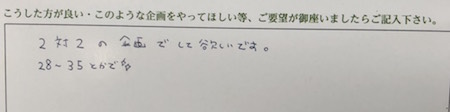 こうした方が良い・このような企画をやってほしい等、ご要望が御座いましたらご記入下さい。
2対2の企画でして欲しいです。
28～35とかで